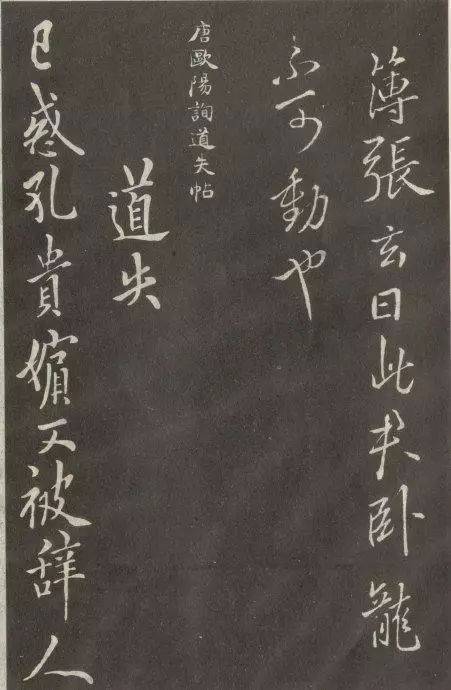 簿張玄曰此夫卧龍
不可動也
唐歐陽詢道失帖
道失
已惑孔貴嬪又被辞人